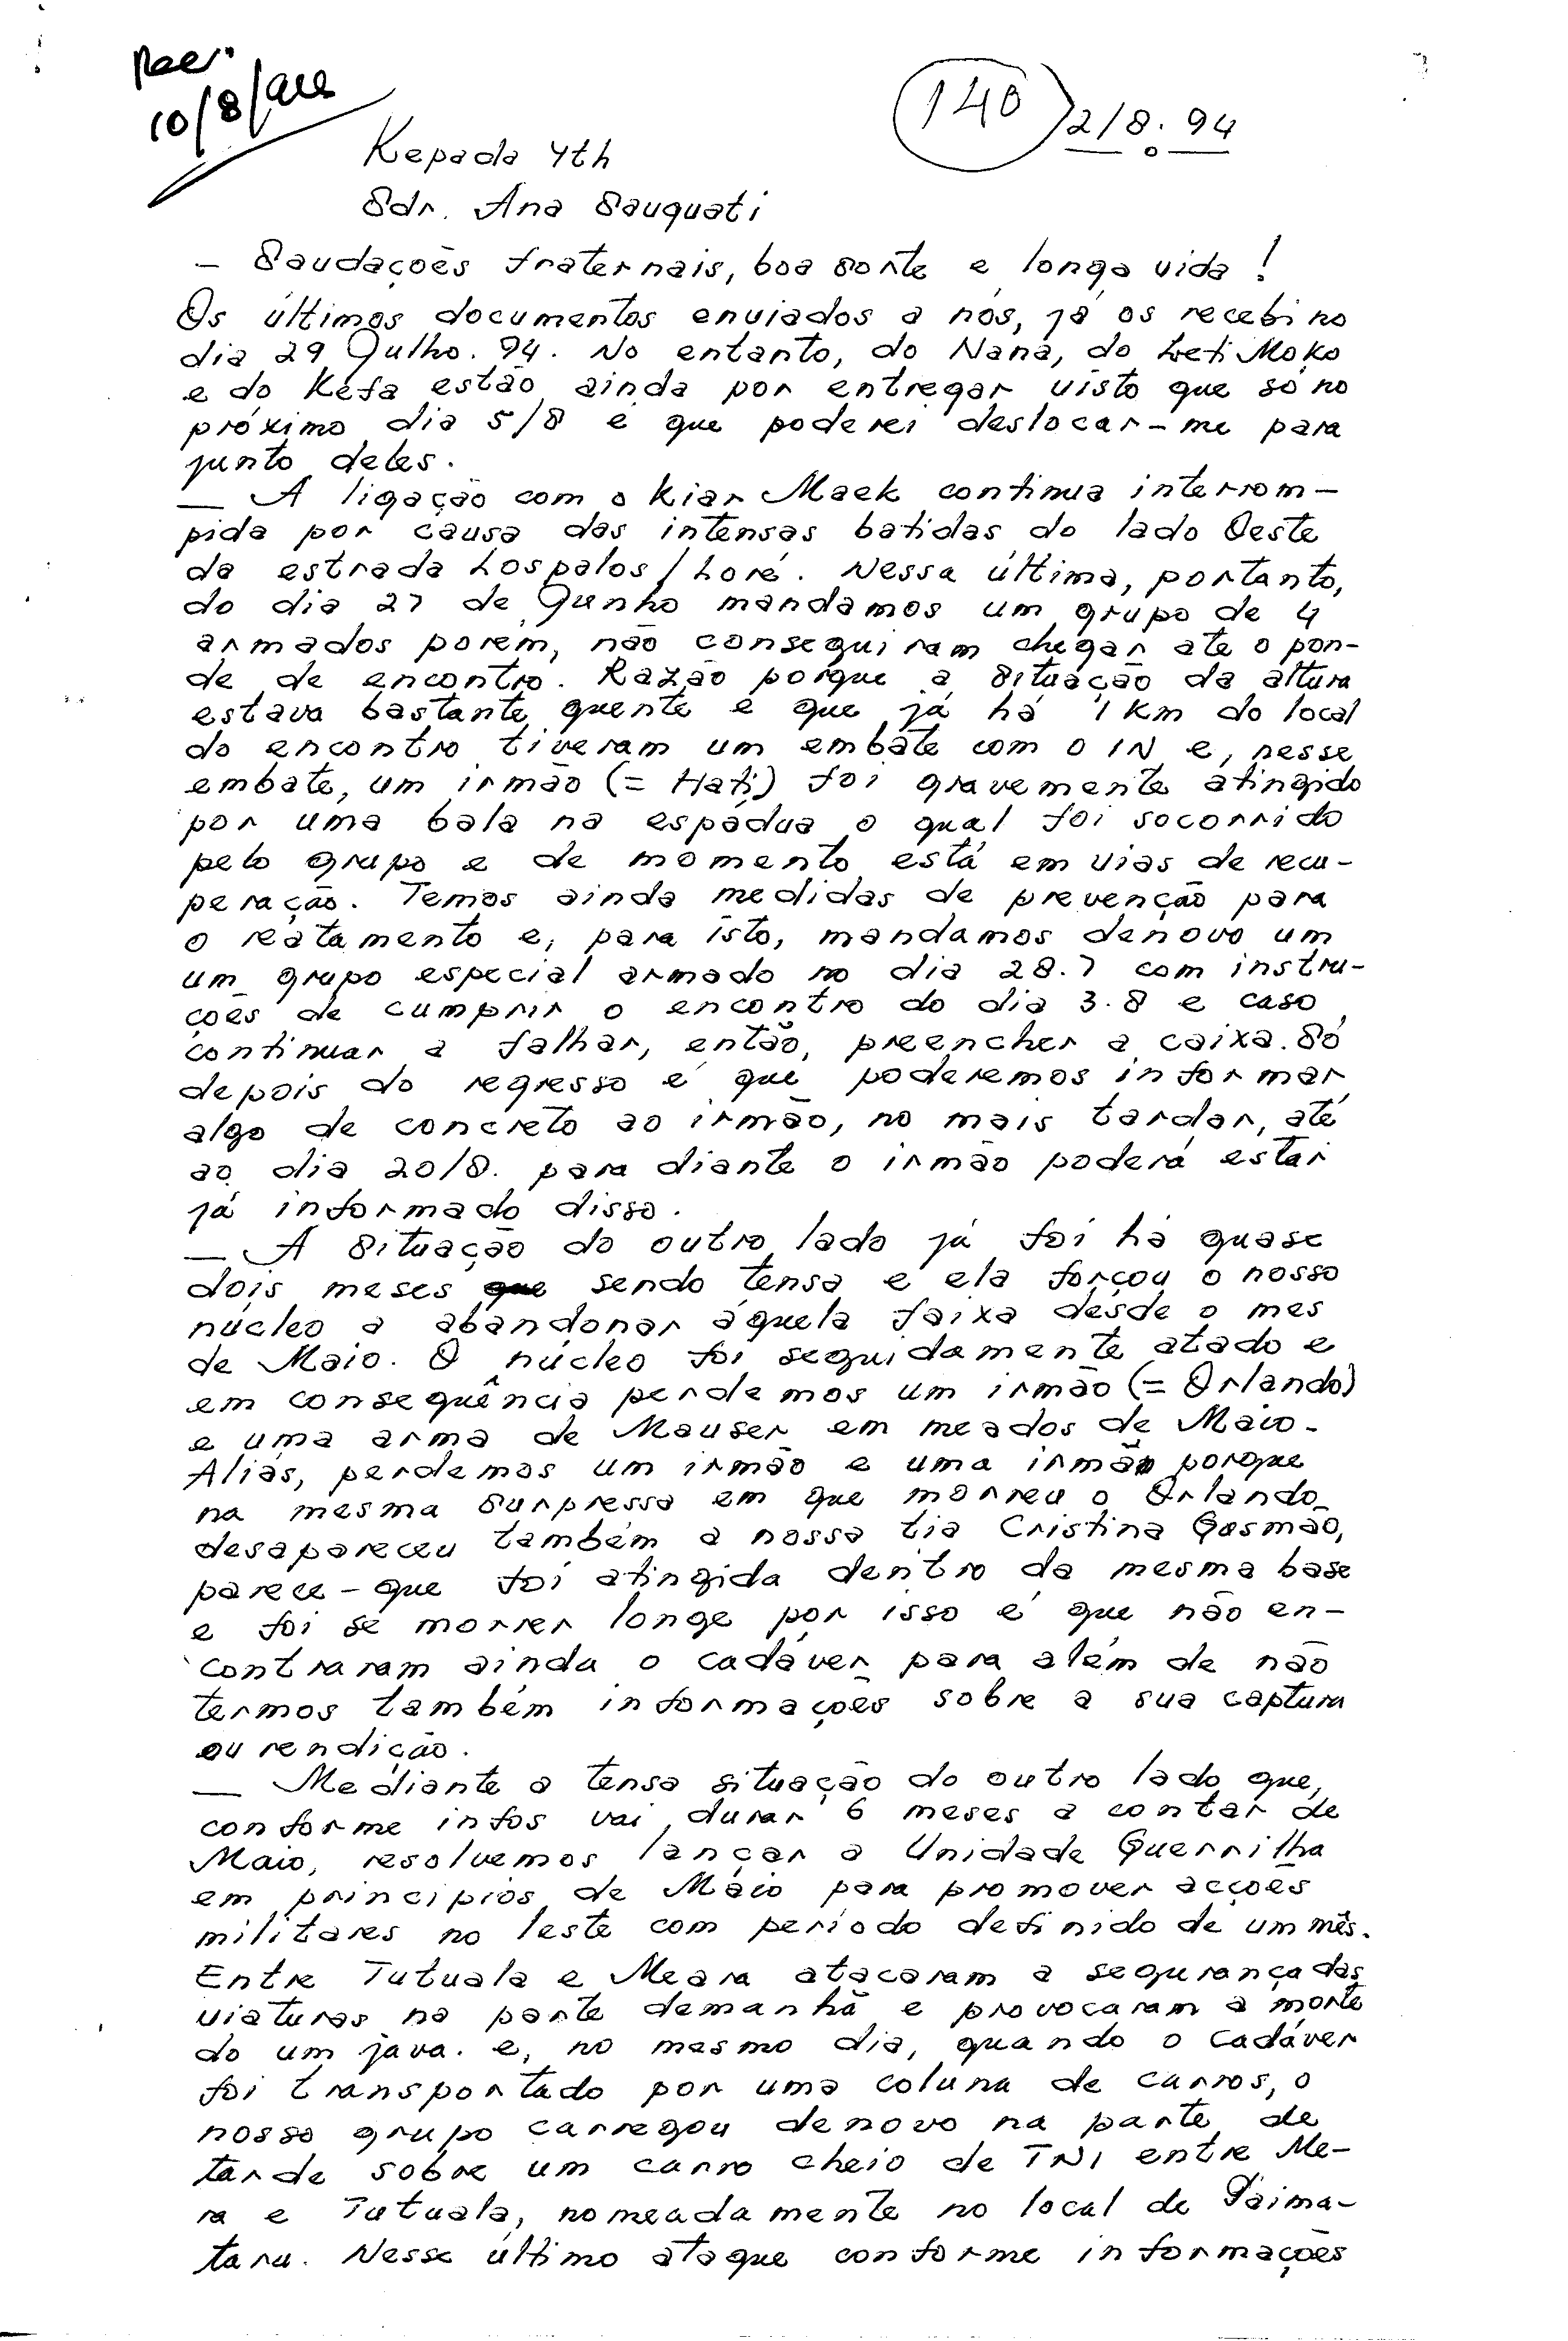 Rec.
10/8/
140
2/8.94
Kepada Yth
Sdr. Ana Sauquati
– Saudações fraternais, boa sorte e longa vida!
Os últimos documentos enviados a nós, já os recebi no
dia 29 Julho. 94. No entanto, do Nana, do Leti Moko
e do Kefa estão ainda por entregar visto que só no
próximo dia 5/8 é que poderei deslocar-me para
junto deles.
— A ligação com o Kiar Maek continua interrom-
pida por causa das intensas batidas do lado Oeste
da estrada Lospalos/Loré. Nessa última, portanto,
do dia 27 de Junho mandamos um grupo de 4
armados porém, não conseguiram chegar até o pon-
de de encontro. Razão porque a situação da altura
estava bastante quente e que já há 1 Km do local
do encontro tiveram um embate com o IN e, nesse
embate, um irmão (= Hati) foi gravemente atingido
por uma bala na espádua o qual foi socorrido
pelo grupo e de momento está em vias de recu-
peração. Temos ainda medidas de prevenção para
o reatamento e, para isto, mandamos denovo um
um grupo especial armado no dia 28.7 com instru-
ções de cumprir o encontro do dia 3.8 e caso
continuar a falhar, então, preencher a caixa. Só
depois do regresso é que poderemos informar
algo de concreto ao irmão, no mais tardar, até
ao dia 20/8. para diante o irmão poderá estar
já informado disso.
— A situação do outro lado já foi há quase
dois meses sendo tensa e ela forçou o nosso
núcleo a abandonar àquela faixa desde o mes
de Maio. O núcleo foi seguidamente atado e
em consequência perdemos um irmão (= Orlando)
e uma arma de Mauser em meados de Maio.
Aliás, perdemos um irmão e uma irmã porque
na mesma surpressa em que morreu o Orlando
desapareceu também a nossa tia Cristina Gosmão,
parece-que foi atingida dentro da mesma base
e foi se morrer longe por isso é que não en-
contraram ainda o cadáver para além de não
termos também informações sobre a sua captura
ou rendição.
— Mediante a tensa situação do outro lado que,
conforme infos vai durar 6 meses a contar de
Maio, resolvemos lançar a Unidade Guerrilha
em princípios de Maio para promover acções
militares no leste com período definido de um mês.
Entre Tutuala e Meara atacaram a segurança das
viaturas na parte demanhã e provocaram a morte
do um java. e, no mesmo dia, quando o cadáver
foi transportado por uma coluna de carros, o
nosso grupo carregou denovo na parte de
tarde sobre um carro cheio de TNI entre Me-
ra e Tutuala, nomeadamente no local de Paima-
taru. Nesse último ataque conforme informações